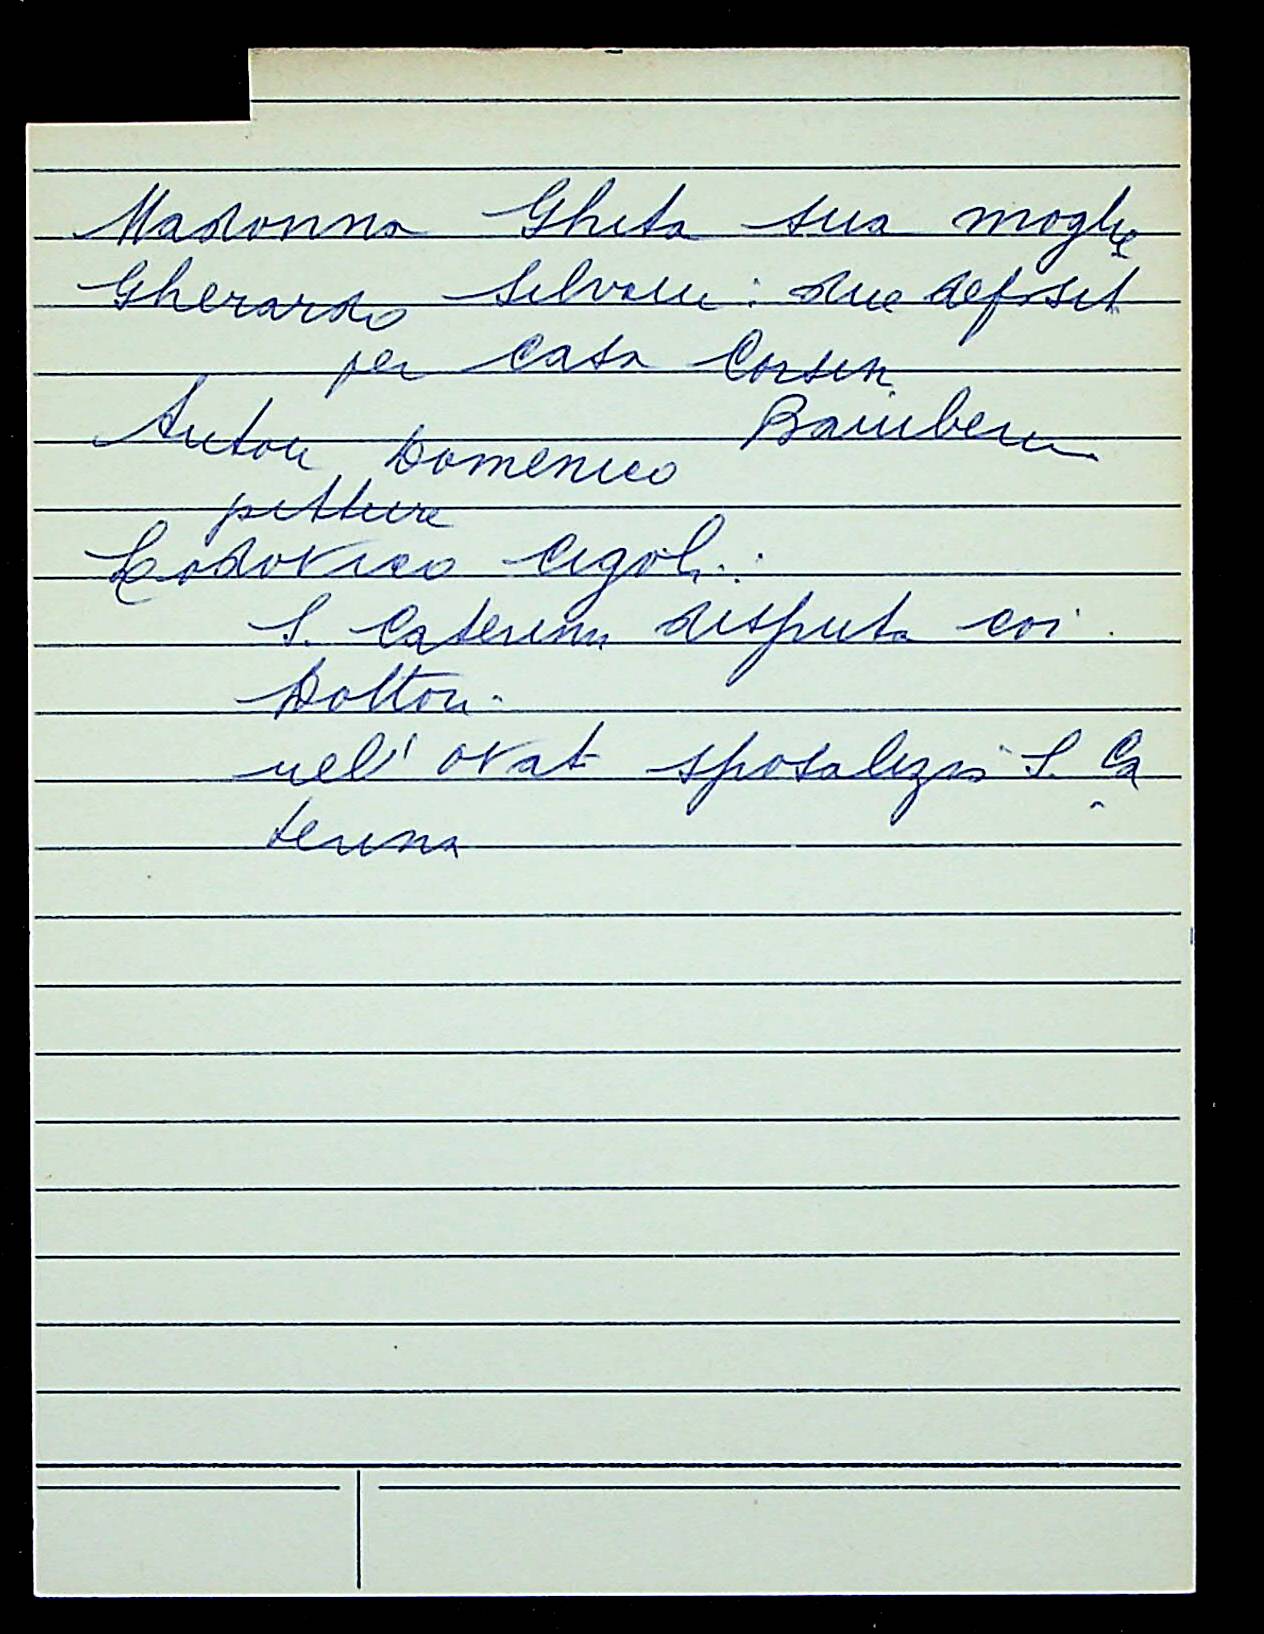 Madonna Ghita sua moglie
Gherardo Silvani: due deposit
per casa Corsin
Anton Domenico Bamberini
pitture
Lodovico Cigoli:
S. Caterina disputa coi
Dottori.
nell' ovat sposalizio S. Ca
terina